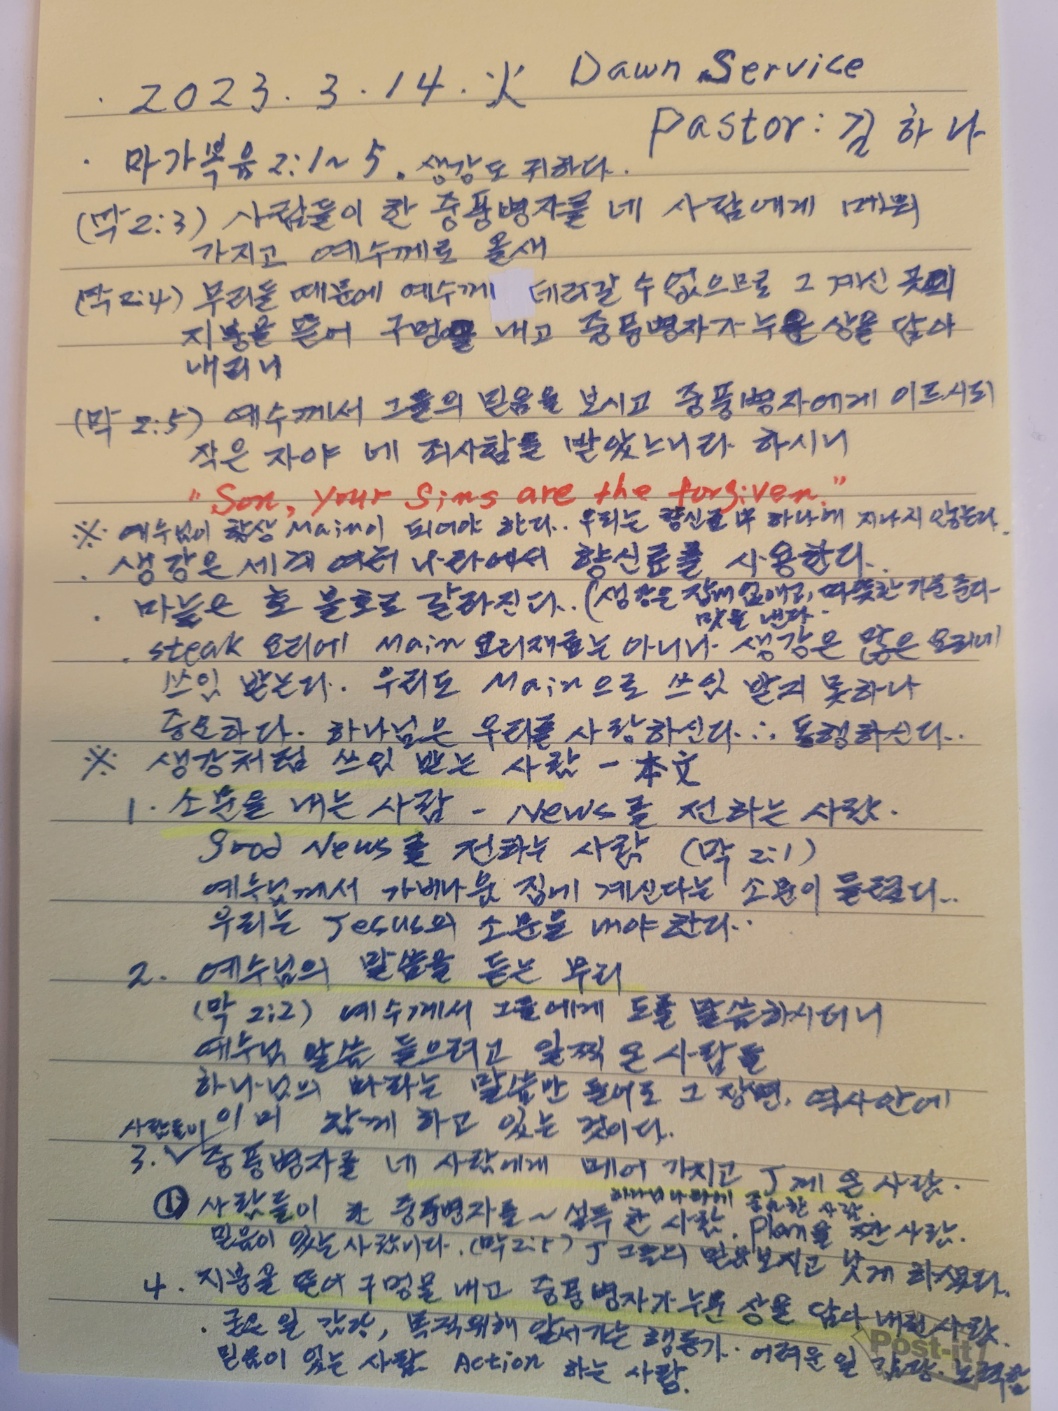 · 2023. 3. 14. 火 Dawn Service
Pastor: 김하나
· 마가복음 2:1~5. 생강도 귀하다.
(막2:3) 사람들이 한 중풍병자를 네 사람에게 메워
가지고 예수께로 올새
(막2:4) 무리들 때문에 예수께 데려갈 수 없으므로 그 계신 곳의
지붕을 뜯어 구멍을 내고 중풍병자가 누운 상을 달아
내리니
(막 2:5) 예수께서 그들의 믿음을 보시고 중풍병자에게 이르시되
작은 자야 네 죄사함를 받았느니라 하시니
"Son, your Sins are the forgiven."
※ 예수님이 항상 Main이 되어야 한다.. 우리는 향신료中 하나에 지나지 않는다.
· 생강은 세계 여러 나라에서 향신료를 사용한다..
· 마늘은 호 불호로 갈라진다.. (생강은 잡내 없애고, 따뜻한 기운 준다-
맛을 낸다.
· steak 요리에 Main 요리재료는 아니나 생강은 많은 요리에
쓰임 받는다. 우리도 Main으로 쓰임 받지 못하나
중요하다. 하나님은 우리를 사랑하신다. ∴ 동행하신다..
※ 생강처럼 쓰임 받는 사람 - 本文
1. 소문을 내는 사람 - News를 전하는 사람.
Good News를 전하는 사람 (막 2:1)
예수님께서 가버나움 집에 계신다는 소문이 들렸다..
우리는 Jesus의 소문을 내야 한다..
2. 예수님의 말씀을 듣는 무리
(막 2:2) 예수께서 그들에게 도를 말씀하시더니
예수님 말씀 들으려고 일찍 온 사람들
하나님의 바라는 말씀만 들어도 그 장면, 역사안에
이미 함께 하고 있는 것이다.
사람들이
3. ✓ 중풍병자를 네 사람에게 메어 가지고 J께 온 사람.
하나님 나라에 중요한 사람.
① 사람들이 한 중풍병자를 ~ 설득 한 사람. Plan을 짠 사람.
믿음이 있는 사람이다. (막2:5) J 그들의 믿음 보시고 낫게 하셨다.
4. 지붕을 뜯어 구멍을 내고 중풍병자가 누운 상을 달아 내린 사람.
· 궂은 일 감당, 목적위해 앞서가는 행동가. 어려운 일 감당. 노력함
믿음이 있는 사람 Action 하는 사람.
Post-it